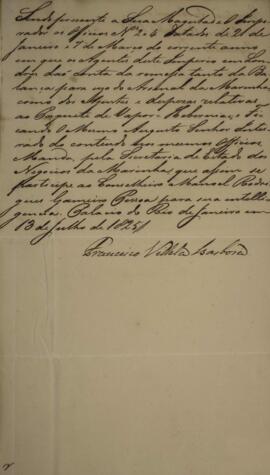 Sendo presente a Sua Magestade o Imperador
os Officios Nos 3 e 4 datados de 21 de
Janeiro e 7 de Março do corrente anno
em que os Agentes deste Imperio em Lon
dres dão conta da remessa tanto da Ba
lança para uso do Arsenal da Marinha,
como dos Agentes e despezas relativas
ao Paquete de Vapor e fi
cando O Mesmo Augusto Senhor Intei
rado do conteudo dos mesmos Officios,
Manda, pela Secretaria de Estado dos
Negocios da Marinha que assim se
participe ao Conselheiro Manoel Rodri
gues Gameiro Pessoa para sua intelli
gencia. Palacio do Rio de Janeiro em
13 de Julho de 1825
Francisco Villela Barboza